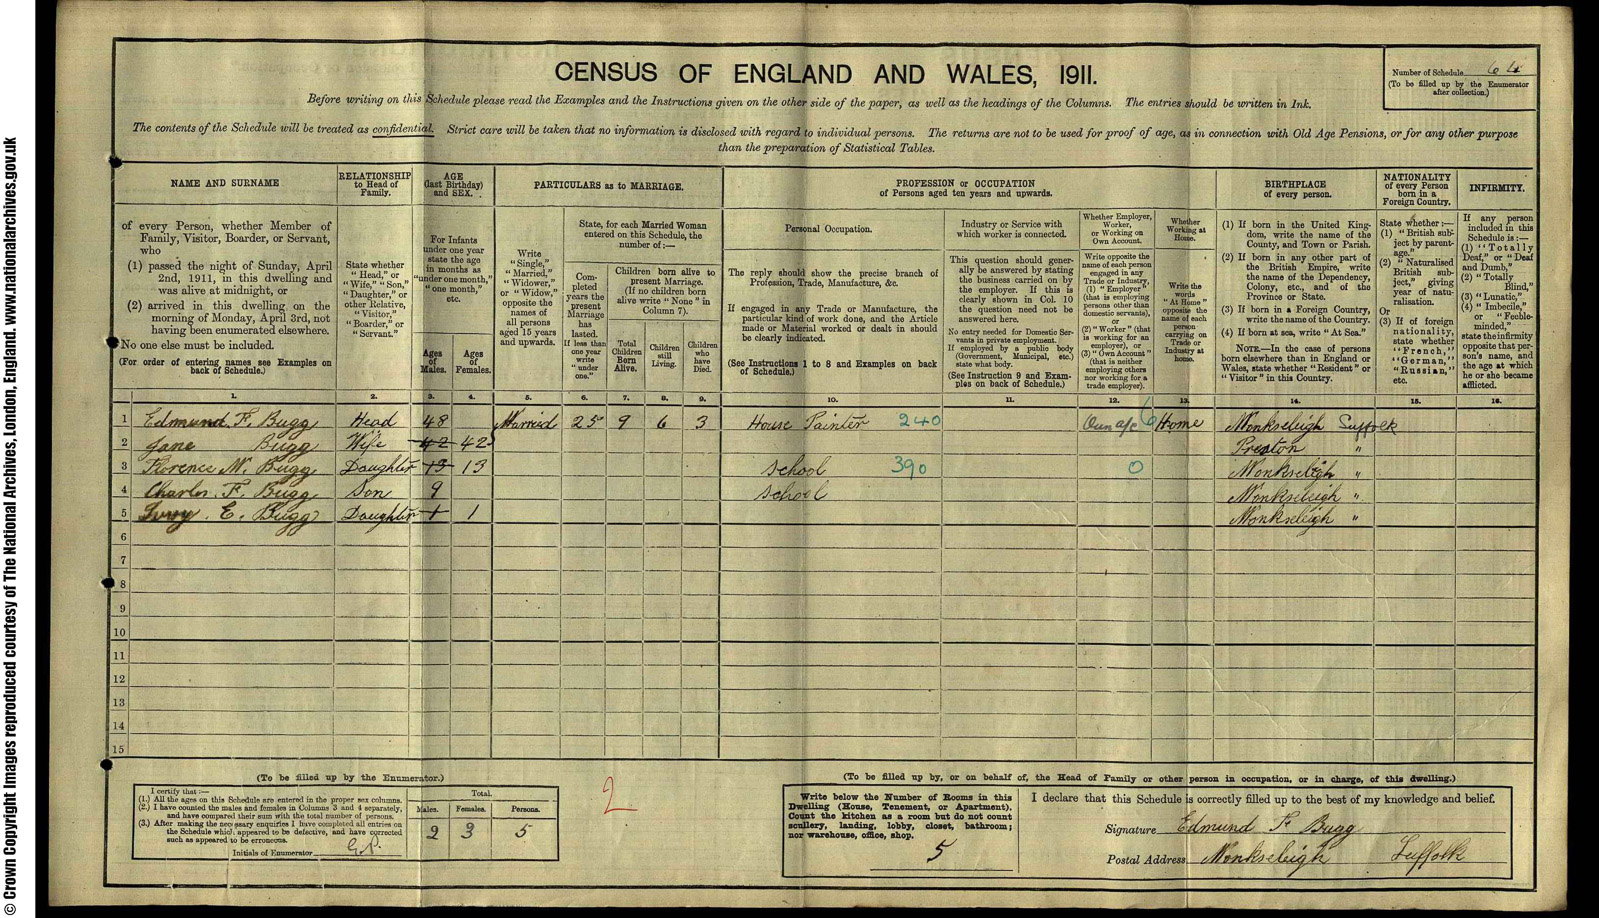 © Crown Copyright Images reproduced courtesy of The National Archives, London, England. www.nationalarchives.gov.uk
CENSUS OF ENGLAND AND WALES, 1911.
Number of Schedule 64
(To be filled up by the Enumerator
after collection.)
Before writing on this Schedule please read the Examples and the Instructions given on the other side of the paper, as well as the headings of the Columns. The entries should be written in Ink.
The contents of the Schedule will be treated as confidential. Strict care will be taken that no information is disclosed with regard to individual persons. The returns are not to be used for proof of age, as in connection with Old Age Pensions, or for any other purpose
than the preparation of Statistical Tables.
NAME AND SURNAME
of every Person, whether Member of
Family, Visitor, Boarder, or Servant,
who
(1) passed the night of Sunday, April
2nd, 1911, in this dwelling and
was alive at midnight, or
(2) arrived in this dwelling on the
morning of Monday, April 3rd, not
having been enumerated elsewhere.
No one else must be included.
(For order of entering names see Examples on
back of Schedule.)
RELATIONSHIP
to Head of
Family.
State whether
"Head," or
"Wife," "Son,"
"Daughter," or
other Relative,
"Visitor,"
"Boarder," or
"Servant."
AGE
(last Birthday)
and SEX.
For Infants
under one year
state the age
in months as
"under one month,"
"one month,"
etc.
Ages
of
Males.
Ages
of
Females.
PARTICULARS as to MARRIAGE.
Write
"Single,"
"Married,"
"Widower,"
or "Widow,"
opposite the
names of
all persons
aged 15 years
and upwards.
State, for each Married Woman
entered on this Schedule, the
number of:—
Com-
pleted
years the
present
Marriage
has
lasted.
If less than
one year
write
"under
one."
Children born alive to
present Marriage.
(If no children born
alive write "None" in
Column 7).
Total
Children
Born
Alive.
Children
still
Living.
Children
who
have
Died.
PROFESSION or OCCUPATION
of Persons aged ten years and upwards.
Personal Occupation.
The reply should show the precise branch of
Profession, Trade, Manufacture, &c.
If engaged in any Trade or Manufacture, the
particular kind of work done, and the Article
made or Material worked or dealt in should
be clearly indicated.
(See Instructions 1 to 8 and Examples on back
of Schedule.)
Industry or Service with
which worker is connected.
This question should gener-
ally be answered by stating
the business carried on by
the employer. If this is
clearly shown in Col. 10
the question need not be
answered here.
No entry needed for Domestic Ser-
vants in private employment.
If employed by a public body
(Government, Municipal, etc.)
state what body.
(See Instruction 9 and Exam-
ples on back of Schedule.)
Whether Employer,
Worker,
or Working on
Own Account.
Write opposite the
name of each person
engaged in any
Trade or Industry,
(1) "Employer"
(that is employing
persons other than
domestic servants),
or
(2) "Worker" (that
is working for an
employer), or
(3) "Own Account"
(that is neither
employing others nor
working for a
trade employer).
Whether
Working at
Home.
Write the
words
"At Home"
opposite the
name of each
person
carrying on
Trade or
Industry at
home.
BIRTHPLACE
of every person.
(1) If born in the United King-
dom, write the name of the
County, and Town or Parish.
(2) If born in any other part of
the British Empire, write
the name of the Dependency,
Colony, etc., and of the
Province or State.
(3) If born in a Foreign Country,
write the name of the Country.
(4) If born at sea, write "At Sea."
NOTE.—In the case of persons
born elsewhere than in England or
Wales, state whether "Resident" or
"Visitor" in this Country.
NATIONALITY
of every Person
born in a
Foreign Country.
State whether:—
(1) "British sub-
ject by parent-
age."
(2) "Naturalised
British sub-
ject," giving
year of natu-
ralisation.
Or
(3) If of foreign
nationality,
state whether
"French,"
"German,"
"Russian,"
etc.
INFIRMITY.
If any person
included in this
Schedule is:—
(1) "Totally
Deaf," or "Deaf
and Dumb,"
(2) "Totally
Blind,"
(3) "Lunatic,"
(4) "Imbecile,"
or "Feeble-
minded,"
state the infirmity
opposite that per-
son's name, and
the age at which
he or she became
afflicted.
1. 2. 3. 4. 5. 6. 7. 8. 9. 10. 11. 12. 13. 14. 15. 16.
1 Edmund F. Bugg Head 48 Married 25 9 6 3 House Painter 240 Own a/c 6 Home Monkseleigh Suffolk
2 Jane Bugg Wife 42 42 Preston "
3 Florence N. Bugg Daughter 13 13 School 390 0 Monkseleigh "
4 Charles F. Bugg Son 9 School Monkseleigh "
5 E. Bugg Daughter 1 1 Monkseleigh "
6
7
8
9
10
11
12
13
14
15
(To be filled up by the Enumerator.)
I certify that:—
(1.) All the ages on this Schedule are entered in the proper sex columns.
(2.) I have counted the males and females in Columns 3 and 4 separately,
and have compared their sum with the total number of persons.
(3.) After making the necessary enquiries I have completed all entries on
the Schedule which appeared to be defective, and have corrected
such as appeared to be erroneous.
Initials of Enumerator G.P.
Total.
Males. Females. Persons.
2 3 5
2
(To be filled up by, or on behalf of, the Head of Family or other person in occupation, or in charge, of this dwelling.)
Write below the Number of Rooms in this
Dwelling (House, Tenement, or Apartment).
Count the kitchen as a room but do not count
scullery, landing, lobby, closet, bathroom;
nor warehouse, office, shop.
5
I declare that this Schedule is correctly filled up to the best of my knowledge and belief.
Signature Edmund F Bugg
Postal Address Monkseleigh Suffolk